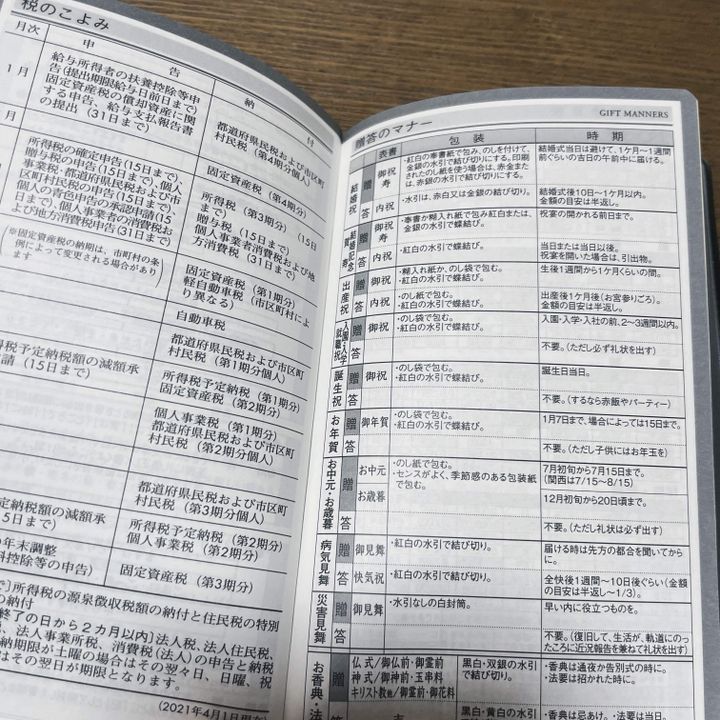 税のこよみ
月次
申告
納付
1月
給与所得者の扶養控除等申
告(提出期限給与日前日まで)
固定資産税の償却資産に関
する申告、給与支払報告書
の提出(31日まで)
都道府県民税および市区町
村民税(第4期個人分)
月
所得税の確定申告(15日まで)
贈与税の申告(15日まで)、個人
事業税・都道府県民税および市
区町村民税の申告(15日まで)
個人の青色申告の承認申請(15
日まで)、個人事業者の消費税お
よび地方消費税申告(31日まで)
固定資産税(第4期)
所得税(第3期分)(15日
贈与税(15日まで)
個人事業者消費税および地
方消費税(31日まで)
※固定資産税の納期は、市町村の条
例によって変更される場合があり
ます
固定資産税(第1期)
軽自動車税(市区町村によ
り異なる)
自動車税
都道府県民税および市区町
村民税(第1期分個人)
予定納税額の減額承
請(15日まで)
所得税予定納税(第1期分)
固定資産税(第2期分)
個人事業税(第1期分)
都道府県民税および市区町
村民税(第2期個人分)
都道府県民税および市区町
村民税(第3期個人分)
定納税額の減額承
5日まで)
所得税予定納税(第2期分)
個人事業税(第2期分)
年末調整
控除等の申告)
固定資産税(第3期分)
で〕所得税の源泉徴収税額の納付と住民税の特別
の納付
終了の日から2カ月以内〕法人税、法人住民税、
、法人事業所税、消費税(法人)の申告と納税
納期限が土曜の場合はその翌々日、日曜、祝
はその翌日が期限となります。
(2021年4月1日現在)
GIFT MANNERS
贈答のマナー
表書
包装
時期
結婚祝
贈
御祝
寿
・紅白の奉書紙で包み、のしを付けて、
金銀の水引で結び切りにする。印刷
されたのし紙を使う場合は、赤金また
は、赤銀の水引で結び切り。
結婚式当日は避けて、1ケ月~1週間
前ぐらいの吉日の午前中に届ける。
答
内祝
・水引は、赤白又は金銀の結び切り。
結婚式後10日~1ケ月以内。
金額の目安は半返し。
結婚記念
賀寿
贈
御祝
寿
・奉書か糊入れ紙で包み紅白または、
金銀の水引で蝶結び。
祝宴の開かれる前日まで。
答
内祝
・紅白の水引で蝶結び。
当日または当日以後。
祝宴を開いた場合は、引出物。
出産祝
贈
御祝
・糊入れ紙か、のし袋で包む。
・紅白の水引で蝶結び。
生後1週間から1ケ月くらいの間。
答
内祝
・のし紙で包む。
・紅白の水引で蝶結び。
出産後1ケ月後(お宮参りごろ)。
金額の目安は半返し。
入園・入学
就職祝
贈
御祝
・のし袋で包む。
・紅白の水引で蝶結び。
入園・入学・入社の前、2~3週間以内。
答
不要。(ただし必ず礼状を出す)
誕生祝
贈
御祝
・のし袋で包む。
・紅白の水引で蝶結び。
誕生日当日。
答
不要。(するなら赤飯やパーティー)
お年賀
贈
御年賀
・のし袋で包む。
・紅白の水引で蝶結び。
1月7日まで、場合によっては15日まで。
答
不要。(ただし子供にはお年玉を)
お中元・お歳暮
贈
お中元
お歳暮
・のし紙で包む。
・センスがよく、季節感のある包装紙
で包む。
7月初旬から7月15日まで。
(関西は7/15~8/15)
12月初旬から20日頃まで。
答
不要。(ただし礼状は必ず出す)
病気見舞
贈
御見舞
・紅白の水引で結び切り。
届ける時は先方の都合を聞いてから
に。
答
快気祝
・紅白の水引で結び切り。
全快後1週間~10日後ぐらい(金額
の目安は半返し~1/3)。
災害見舞
贈
御見舞
・水引なしの白封筒。
早い内に役立つものを。
答
不要。(復旧して、生活が、軌道にのっ
たころに近況報告を兼ねて礼状を出す)
お香典・法
贈
仏式/御仏前・御霊前
神式/御神前・玉串料
キリスト教他/御霊前・御花料
黒白・双銀の水引
で結び切り。
・香典は通夜か告別式の時に。
・法要は招かれた時に。
黒白・黄白の水引
・香典は忌あけ。
・法要は当日。